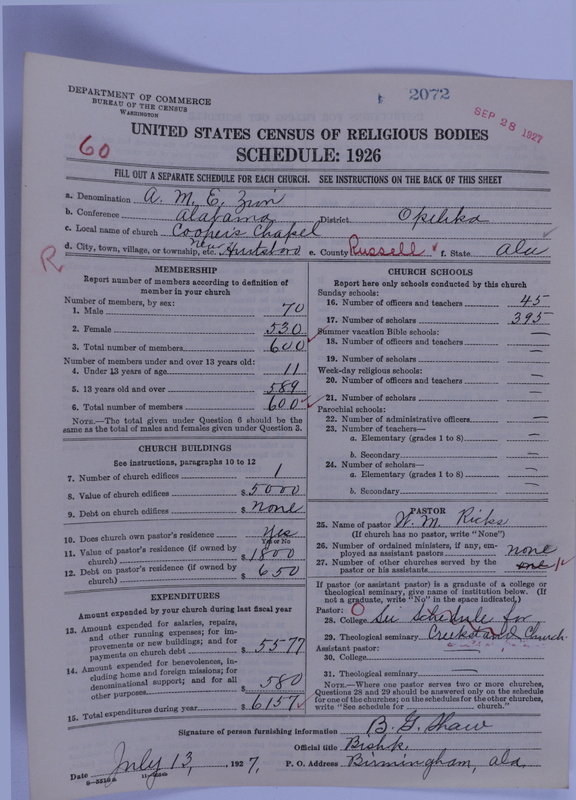 2072
SEP 28 1927
DEPARTMENT OF COMMERCE
BUREAU OF THE CENSUS
WASHINGTON
60
UNITED STATES CENSUS OF RELIGIOUS BODIES
SCHEDULE: 1926
FILL OUT A SEPARATE SCHEDULE FOR EACH CHURCH. SEE INSTRUCTIONS ON THE BACK OF THIS SHEET
a. Denomination A. M. E. Zion
b. Conference Alabama District Opelika
c. Local name of church Cooper's Chapel
d. City, town, village, or township, etc. near Hurtsboro e. County Russell f. State Ala
R
MEMBERSHIP
Report number of members according to definition of
member in your church
Number of members, by sex:
1. Male 70
2. Female 530
3. Total number of members 600
Number of members under and over 13 years old:
4. Under 13 years of age 11
5. 13 years old and over 589
6. Total number of members 600
NOTE.—The total given under Question 6 should be
same as the total of males and females given under Question 3.
CHURCH BUILDINGS
See instructions, paragraphs 10 to 12
7. Number of church edifices 1
8. Value of church edifices $ 5000
9. Debt on church edifices $ none
10. Does church own pastor's residence Yes
Yes or No
11. Value of pastor's residence (if owned by
church) $ 1800
12. Debt on pastor's residence (if owned by
church) $ 650
EXPENDITURES
Amount expended by your church during last fiscal year
13. Amount expended for salaries, repairs,
and other running expenses; for im-
provements or new buildings; and for
payments on church debt $ 5577
14. Amount expended for benevolences, in-
cluding home and foreign missions; for
denominational support; and for all
other purposes $ 580
15. Total expenditures during year $ 6157
CHURCH SCHOOLS
Report here only schools conducted by this church
Sunday schools:
16. Number of officers and teachers 45
17. Number of scholars 395
Summer vacation Bible schools:
18. Number of officers and teachers —
19. Number of scholars —
Week-day religious schools:
20. Number of officers and teachers —
21. Number of scholars —
Parochial schools:
22. Number of administrative officers —
23. Number of teachers—
a. Elementary (grades 1 to 8) —
b. Secondary —
24. Number of scholars—
a. Elementary (grades 1 to 8) —
b. Secondary —
PASTOR
25. Name of pastor W. M. Ricks
(If church has no pastor, write "None")
26. Number of ordained ministers, if any, em-
ployed as assistant pastors none
27. Number of other churches served by the
pastor or his assistants one 1
If pastor (or assistant pastor) is a graduate of a college or
theological seminary, give name of institution below. (If
not a graduate, write "No" in the space indicated.)
Pastor:
28. College See Schedule for
29. Theological seminary Creekstand Church
Assistant pastor:
30. College
31. Theological seminary —
NOTE.—Where one pastor serves two or more churches,
Questions 28 and 29 should be answered only on the schedule
for one of the churches; on the schedules for the other churches,
write "See schedule for church."
Signature of person furnishing information B. G. Shaw
Official title Bishop
Date July 13, 1927. P. O. Address Birmingham, Ala.